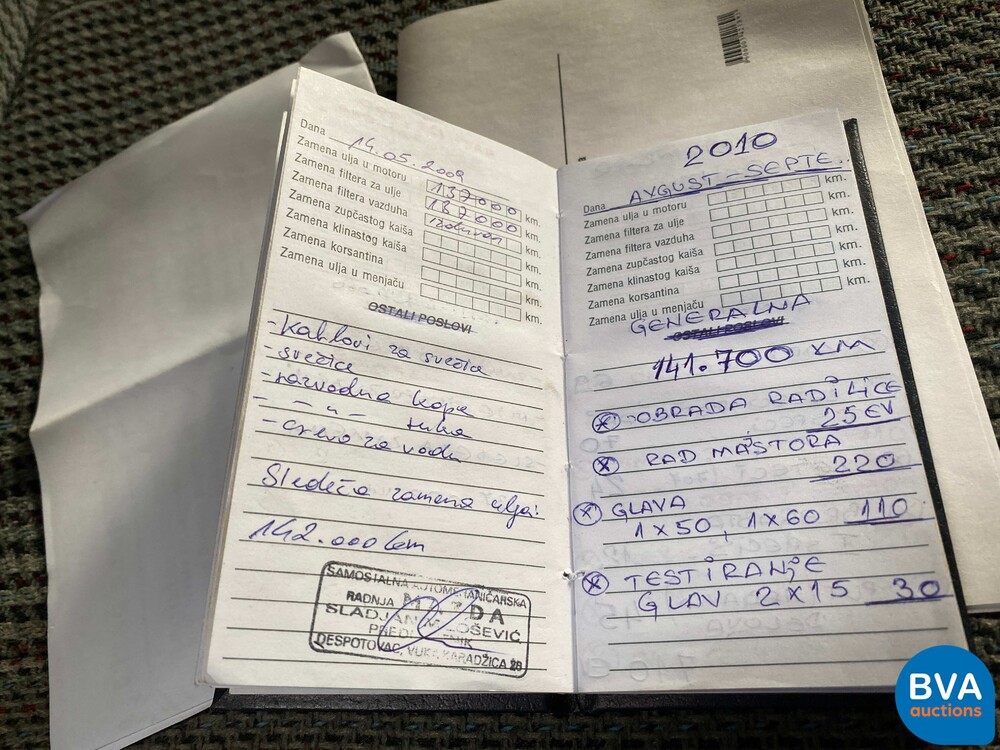 Dana 14.05.2009
Zamena ulja u motoru 137000 km.
Zamena filtera za ulje 137000 km.
Zamena filtera vazduha km.
Zamena zupčastog kaiša km.
Zamena klinastog kaiša km.
Zamena korsantina km.
Zamena ulja u menjaču km.
OSTALI POSLOVI
- kablovi za svećice
- svećice
- razvodna kapa
- - " - ruka
- crevo za vodu
Sledeća zamena ulja:
142.000 km
SAMOSTALNA AUTOMEHANIČARSKA
RADNJA MAZDA
SLADJAN
DESPOTOVAC, VUKA KARADŽICA 28
2010
Dana AVGUST - SEPTE..
Zamena ulja u motoru km.
Zamena filtera za ulje km.
Zamena filtera vazduha km.
Zamena zupčastog kaiša km.
Zamena klinastog kaiša km.
Zamena korsantina km.
Zamena ulja u menjaču km.
GENERALNA
OSTALI POSLOVI
141.700 KM
OBRADA RADILICE
25 EV
RAD MAŠTORA
220
GLAVA
1 x 50, 1 x 60 110
TESTIRANJE
GLAV 2 x 15 30
BVA
auctions